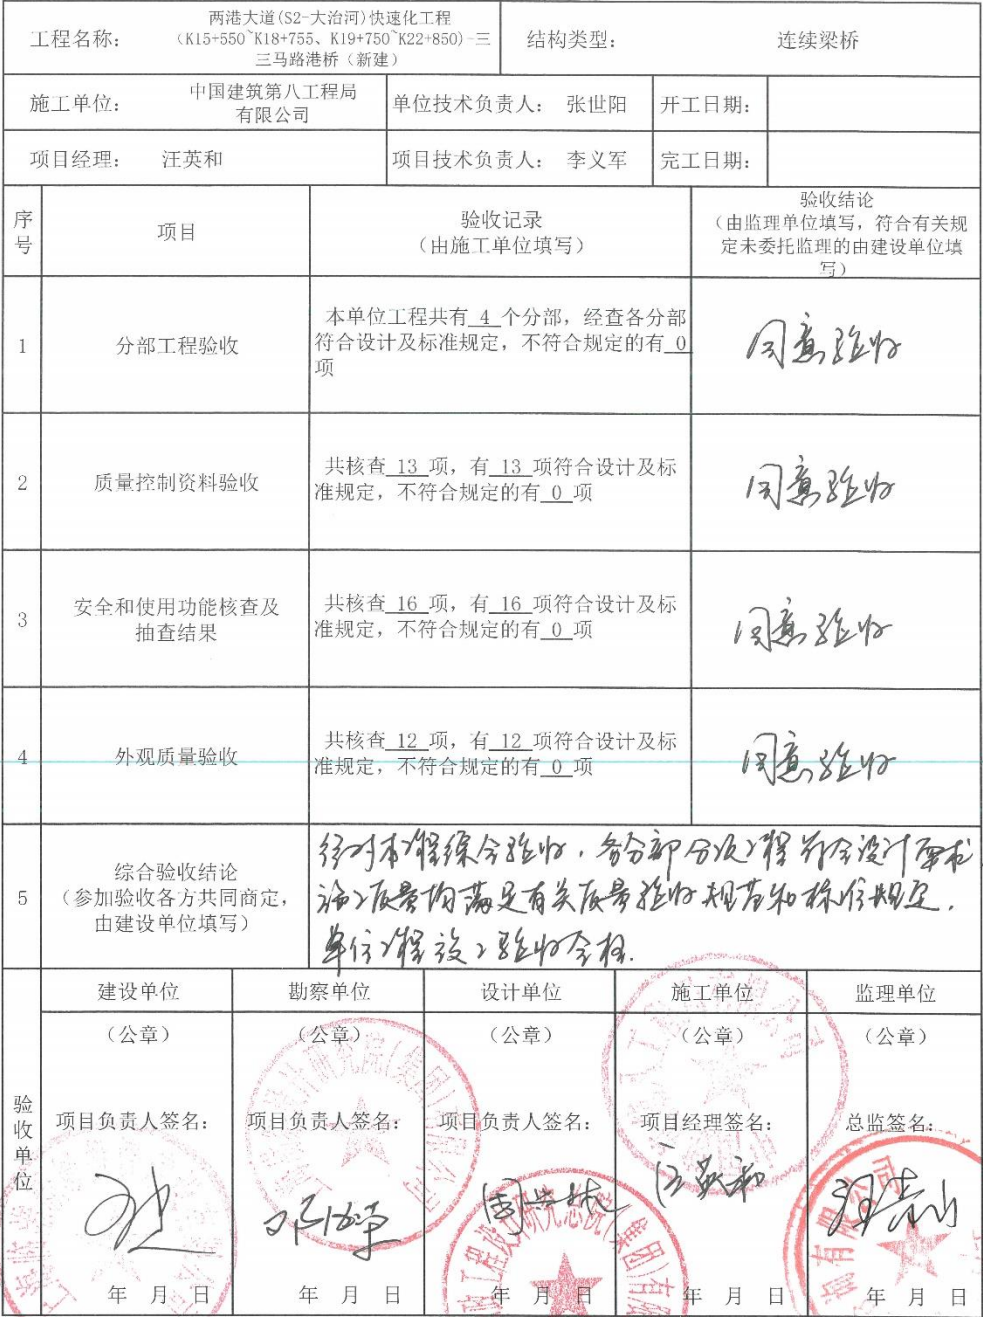 工程名称:
两港大道(S2-大治河)快速化工程
(K15+550~K18+755、K19+750~K22+850)-三
三马路港桥（新建）
结构类型:
连续梁桥
施工单位:
中国建筑第八工程局
有限公司
单位技术负责人: 张世阳
开工日期:
项目经理: 汪英和
项目技术负责人: 李义军
完工日期:
序
号
项目
验收记录
（由施工单位填写）
验收结论
（由监理单位填写，符合有关规
定未委托监理的由建设单位填
写）
1
分部工程验收
本单位工程共有 4 个分部，经查各分部
符合设计及标准规定，不符合规定的有 0
项
同意验收
2
质量控制资料验收
共核查 13 项，有 13 项符合设计及标
准规定，不符合规定的有 0 项
同意验收
3
安全和使用功能核查及
抽查结果
共核查 16 项，有 16 项符合设计及标
准规定，不符合规定的有 0 项
同意验收
4
外观质量验收
共核查 12 项，有 12 项符合设计及标
准规定，不符合规定的有 0 项
同意验收
5
综合验收结论
（参加验收各方共同商定，
由建设单位填写）
经对本工程综合验收，各分部分项工程符合设计要求
施工质量均满足有关质量验收规范和标准规定，
单位工程竣工验收合格.
验收单位
建设单位
勘察单位
设计单位
施工单位
监理单位
（公章）
（公章）
（公章）
（公章）
（公章）
项目负责人签名:
项目负责人签名:
项目负责人签名:
项目经理签名:
总监签名:
汪英和
年 月 日
年 月 日
年 月 日
年 月 日
年 月 日